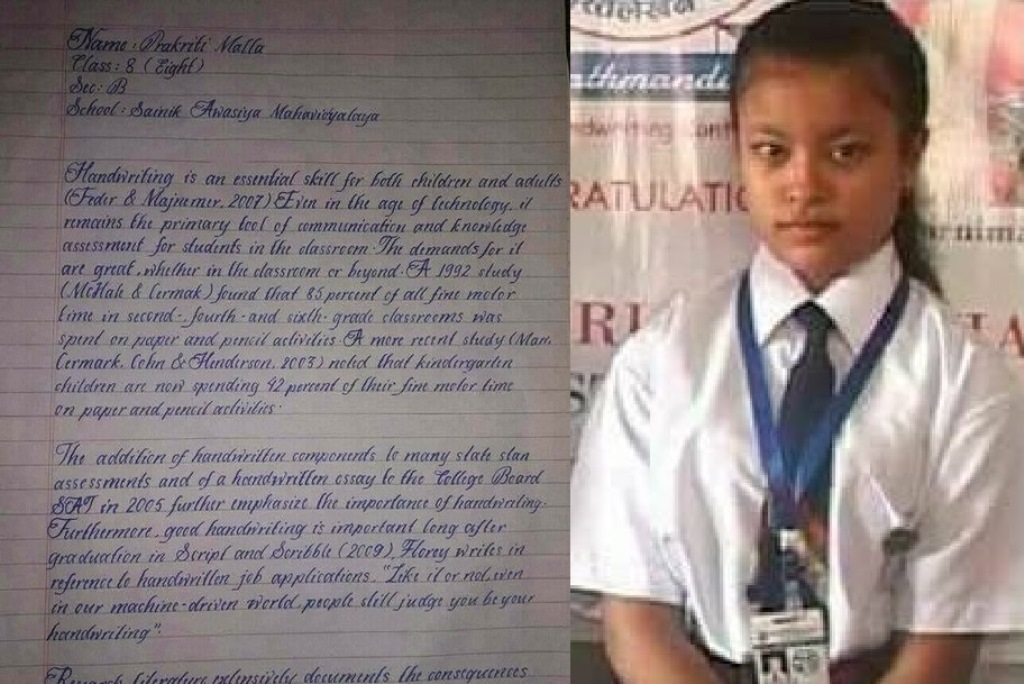 Name : Prakriti Malla
Class : 8 ( Eight )
Sec : B
School : Sainik Awasiya Mahavidyalaya
Handwriting is an essential skill for both children and adults
(Feder & Majnemer, 2007) Even in the age of technology, it
remains the primary tool of communication and knowledge
assessment for students in the classroom. The demands for it
are great, whether in the classroom or beyond. A 1992 study
(McHale & Cermak) found that 85 percent of all fine motor
time in second-, fourth- and sixth- grade classrooms was
spent on paper and pencil activities. A more recent study (Marr,
Cermark, Cohn & Henderson, 2003) noted that kindergarten
children are now spending 42 percent of their fine motor time
on paper and pencil activities.
The addition of handwritten components to many state stan
assessments and of a handwritten essay to the College Board
SAT in 2005 further emphasize the importance of handwriting.
Furthermore, good handwriting is important long after
graduation in Script and Scribble (2009), Florey writes in
reference to handwritten job applications, "Like it or not, even
in our machine-driven world, people still judge you be your
handwriting".
Research literature extensively documents the consequences
athmandu
ndwriting Cont
RATULATIO
RI